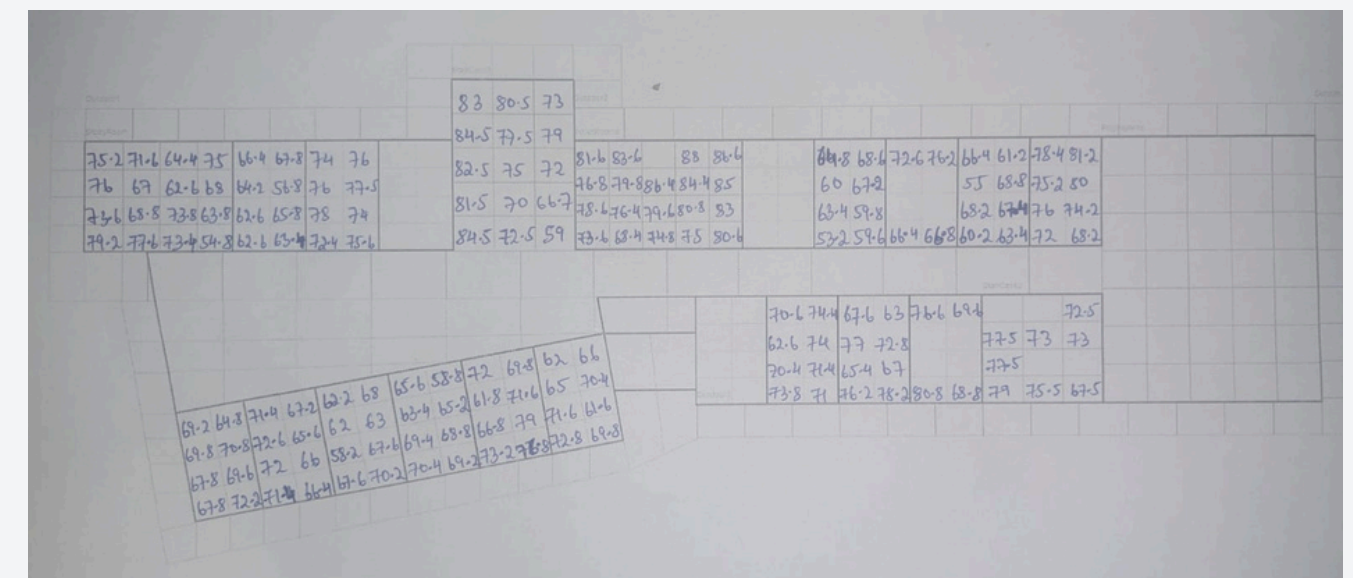 83 80.5 73
84.5 77.5 79
82.5 75 72
81.5 70 66.7
84.5 72.5 59
75.2 71.6 64.4 75 66.4 67.8 74 76
76 67 62.6 68 64.2 56.8 76 77.5
73.6 68.8 73.8 63.8 62.6 65.8 78 74
79.2 77.6 73.4 54.8 62.6 63.4 72.4 75.6
81.6 83.6 88 86.6
76.8 79.8 86.4 84.4 85
78.6 76.4 79.6 80.8 83
73.6 68.4 74.8 75 80.6
68.6 72.6 76.2 66.4 61.2 78.4 81.2
60 67.2 55 68.8 75.2 80
63.4 59.8 68.2 67.4 76 74.2
53.2 59.6 66.4 66.8 60.2 63.4 72 68.2
70.6 74.4 67.6 63 76.6 69.6 72.5
62.6 74 77 72.8 77.5 73 73
70.4 71.4 65.4 67 77.5
73.8 71 76.2 78.2 80.8 68.8 79 75.5 67.5
69.2 64.8 71.4 67.2 62.2 68 65.6 58.8 72 69.8 62 66
69.8 70.8 72.6 65.6 62 63 63.4 65.2 61.8 71.6 65 70.4
67.8 69.6 72 66 58.2 67.6 69.4 68.8 66.8 79 71.6 61.6
67.8 72.2 71.4 66.4 67.6 70.2 70.4 69.2 73.2 76.8 72.8 69.8